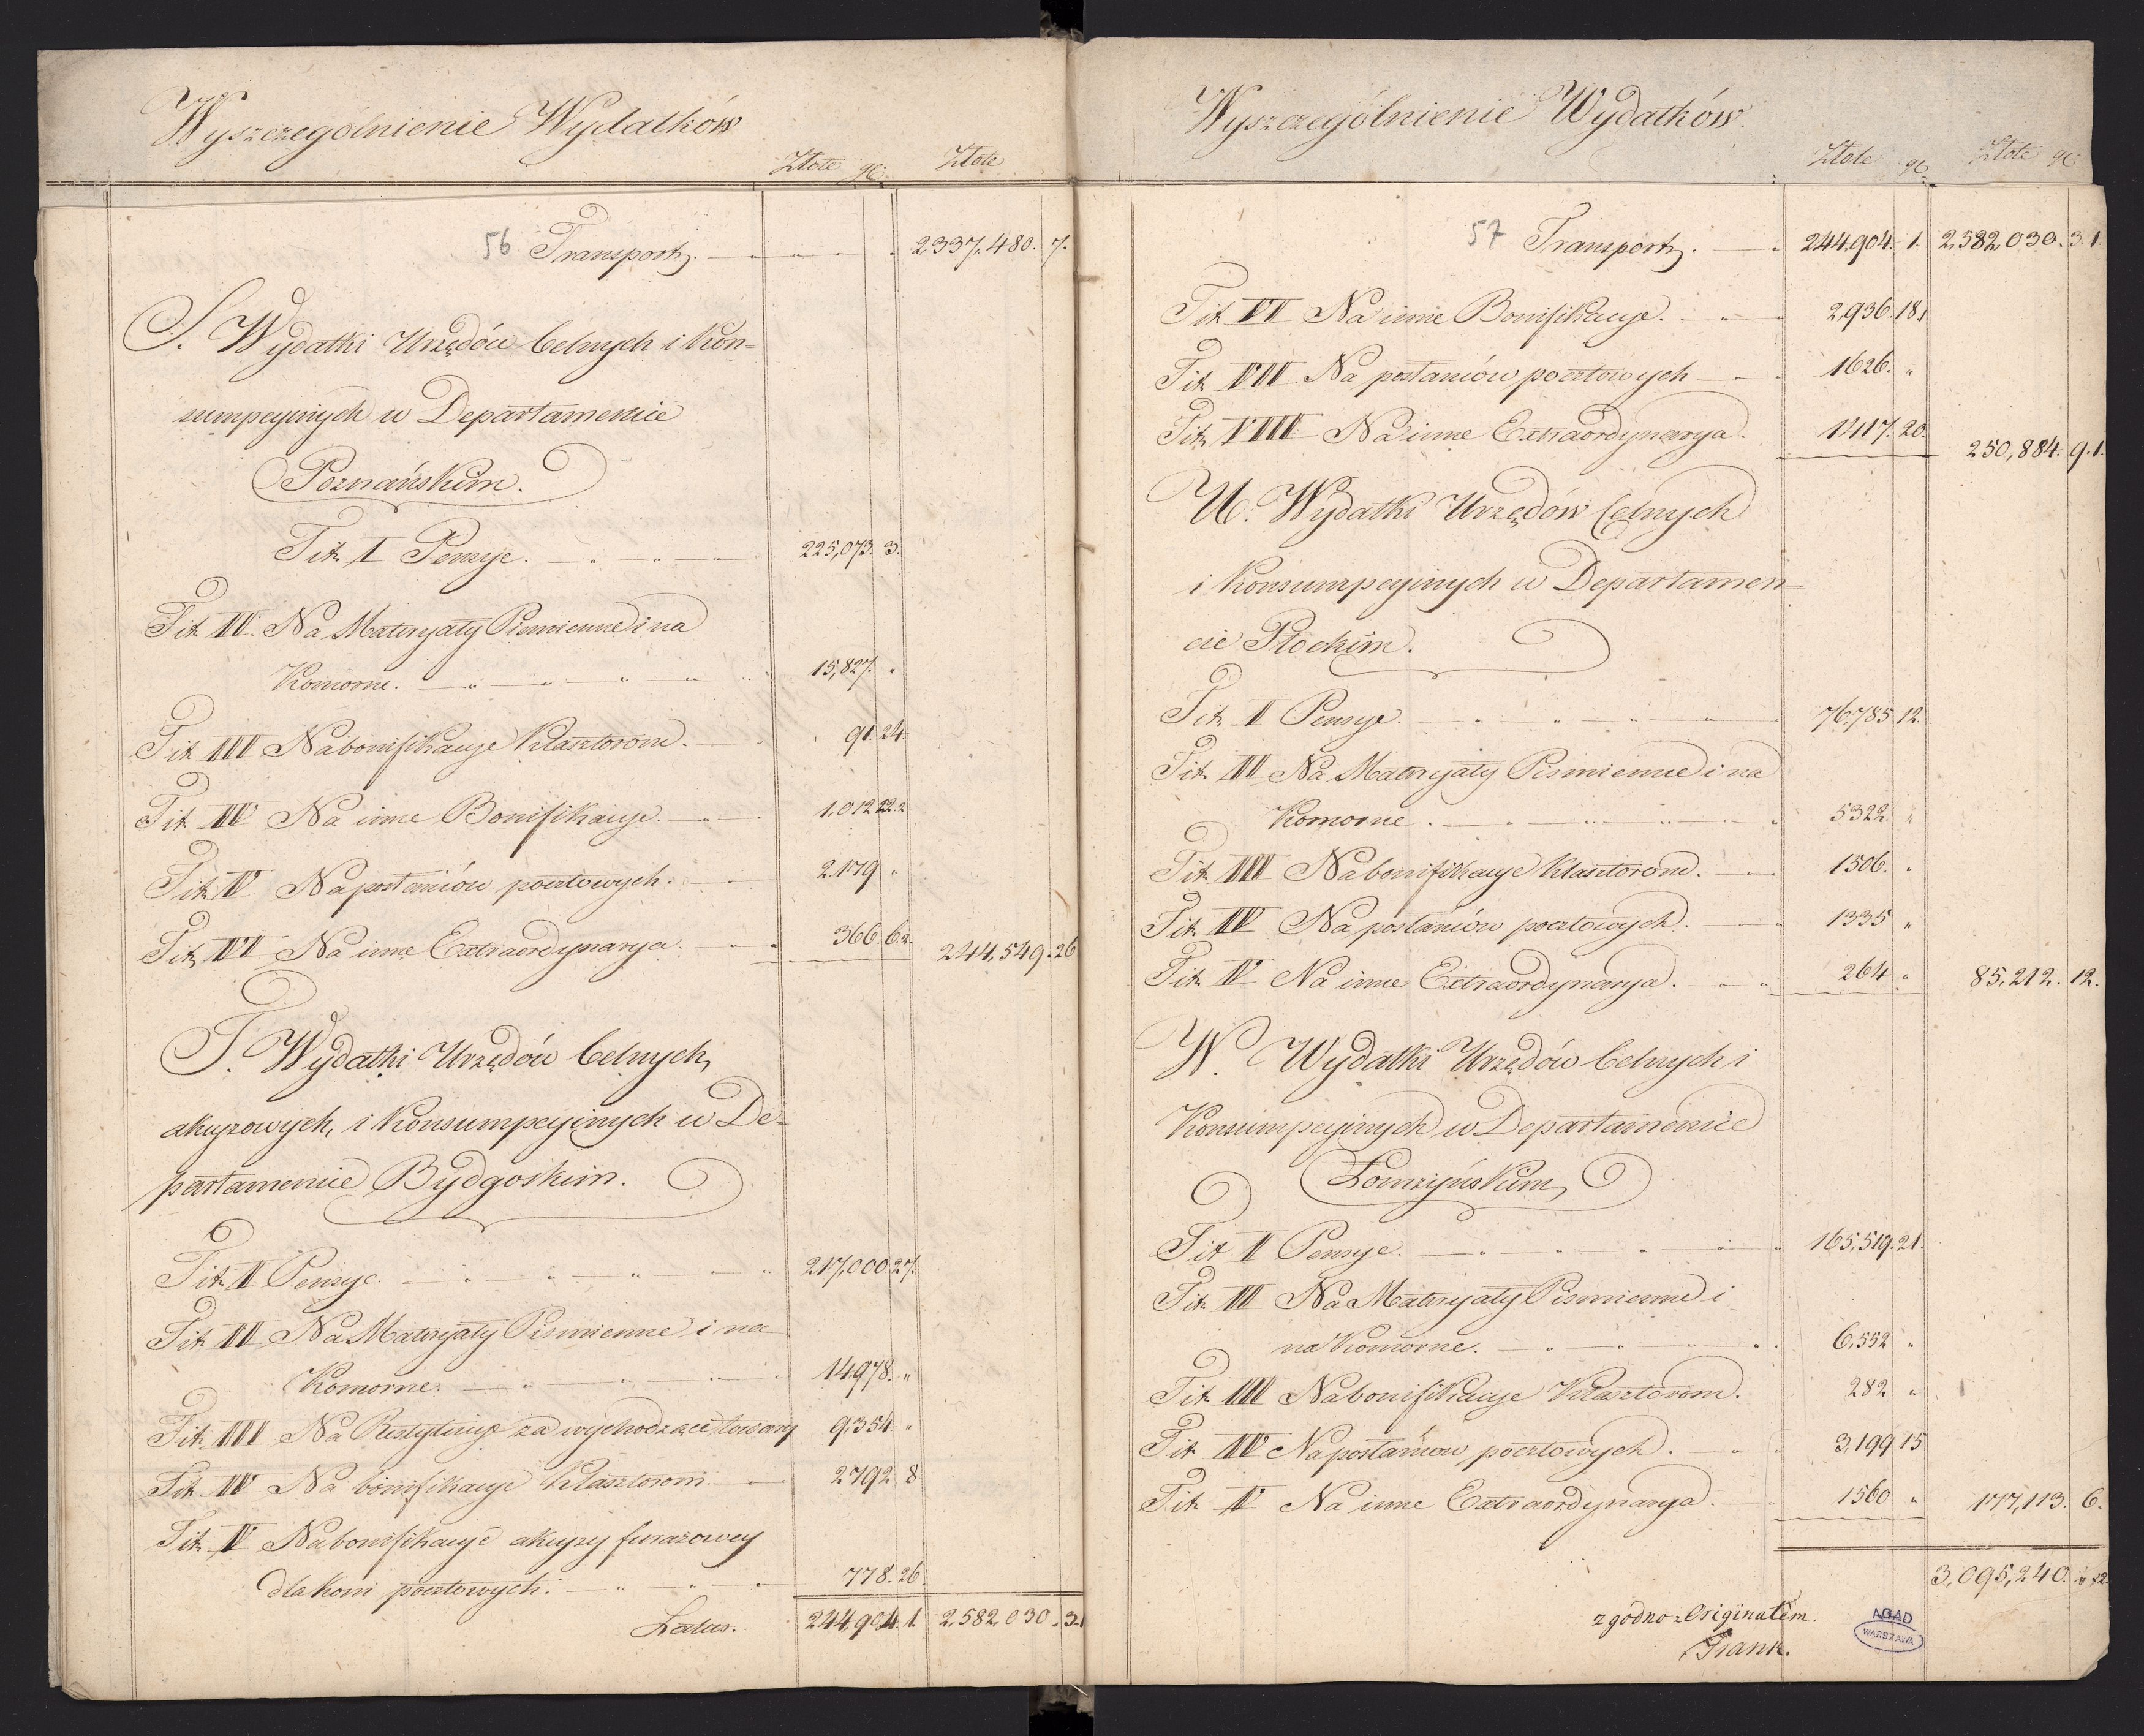 Wyszczególnienie Wydatków
Złote gr: Złote
56 Transport. 2,337,480. 7.
S. Wydatki Urzędów Celnych i Kon-
sumpcyinych w Departamencie
Poznańskim.
Tit. I Pensye. 225,073. 3.
Tit. II. Na Materyały Piśmienne i na
Komorne. 15,827. "
Tit. III Na bonifikacye Klasztorom. 91. 24.
Tit. IV Na inne Bonifikacye. 1,012 22.2
Tit. V Na postaniów pocztowych. 2.179 "
Tit. VI Na inne Extraordynarya. 366. 6.2. 244,549. 26
T. Wydatki Urzędów Celnych,
akcyzowych, i Konsumpcyinych w De-
partamencie Bydgoskim.
Tit. I Pensye. 217,000 27.
Tit. II Na Materyały Piśmienne i na
Komorne. 14,978. "
Tit. III Na Restytucye za wychodzące towary 9,354 "
Tit. IV Na bonifikacye klasztorom. 2792 8
Tit. V Na bonifikacye akcyzy furażowey
dla koni pocztowych. 778. 26.
Latus. 244,904. 1. 2,582,030. 3.1
Wyszczególnienie Wydatków.
Złote gr. Złote gr.
57 Transport. 244,904. 1. 2,582,030. 3.1.
Tit. VI Na inne Bonifikacye. 2,936. 18.
Tit. VII Na postaniów pocztowych 1626. "
Tit. VIII Na inne Extraordynarya. 1417. 20. 250,884. 9.1.
U. Wydatki Urzędów Celnych
i Konsumpcyinych w Departamen-
cie Płockim.
Tit. I Pensye. 76,785 12.
Tit. II Na Materyały Piśmienne i na
Komorne. 5322. "
Tit. III Na bonifikacye Klasztorom. 1506. "
Tit. IV Na postaniów pocztowych. 1335 "
Tit. V Na inne Extraordynarya. 264 " 85,212. 12.
W. Wydatki Urzędów Celnych i
Konsumpcyinych w Departamencie
Łomżyńskim,
Tit. I Pensye. 165,519. 21.
Tit. II Na Materyały Piśmienne i
na Komorne. 6,552 "
Tit. III Na bonifikacye Klasztorom. 282 "
Tit. IV Na postaniów pocztowych. 3,199 15
Tit. V Na inne Extraordynarya. 1560 " 177,113. 6.
3,095,240.
zgodno z Originałem.
Frank.
AGAD
WARSZAWA